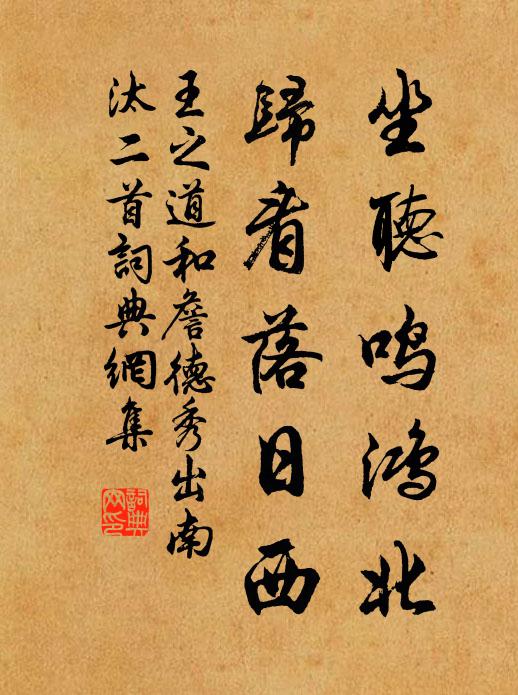 坐聽鳴鴻北
歸看落日西
王之道和詹德秀出南
汰二首詞典網集
詞典
网印